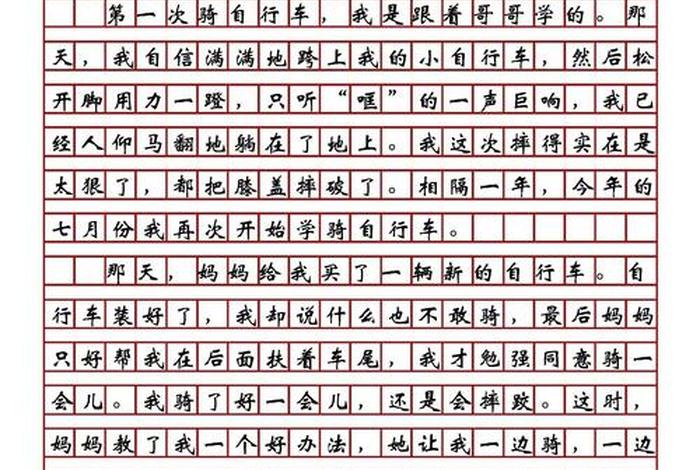 第一次骑自行车，我是跟着哥哥学的。那
天，我自信满满地跨上我的小自行车，然后松
开脚用力一蹬，只听“哐”的一声巨响，我已
经人仰马翻地躺在了地上。我这次摔得实在是
太狠了，都把膝盖摔破了。相隔一年，今年的
七月份我再次开始学骑自行车。
那天，妈妈给我买了一辆新的自行车。自
行车装好了，我却说什么也不敢骑，最后妈妈
只好帮我在后面扶着车尾，我才勉强同意骑一
会儿。我骑了好一会儿，还是会摔跤。这时，
妈妈教了我一个好办法，她让我一边骑，一边